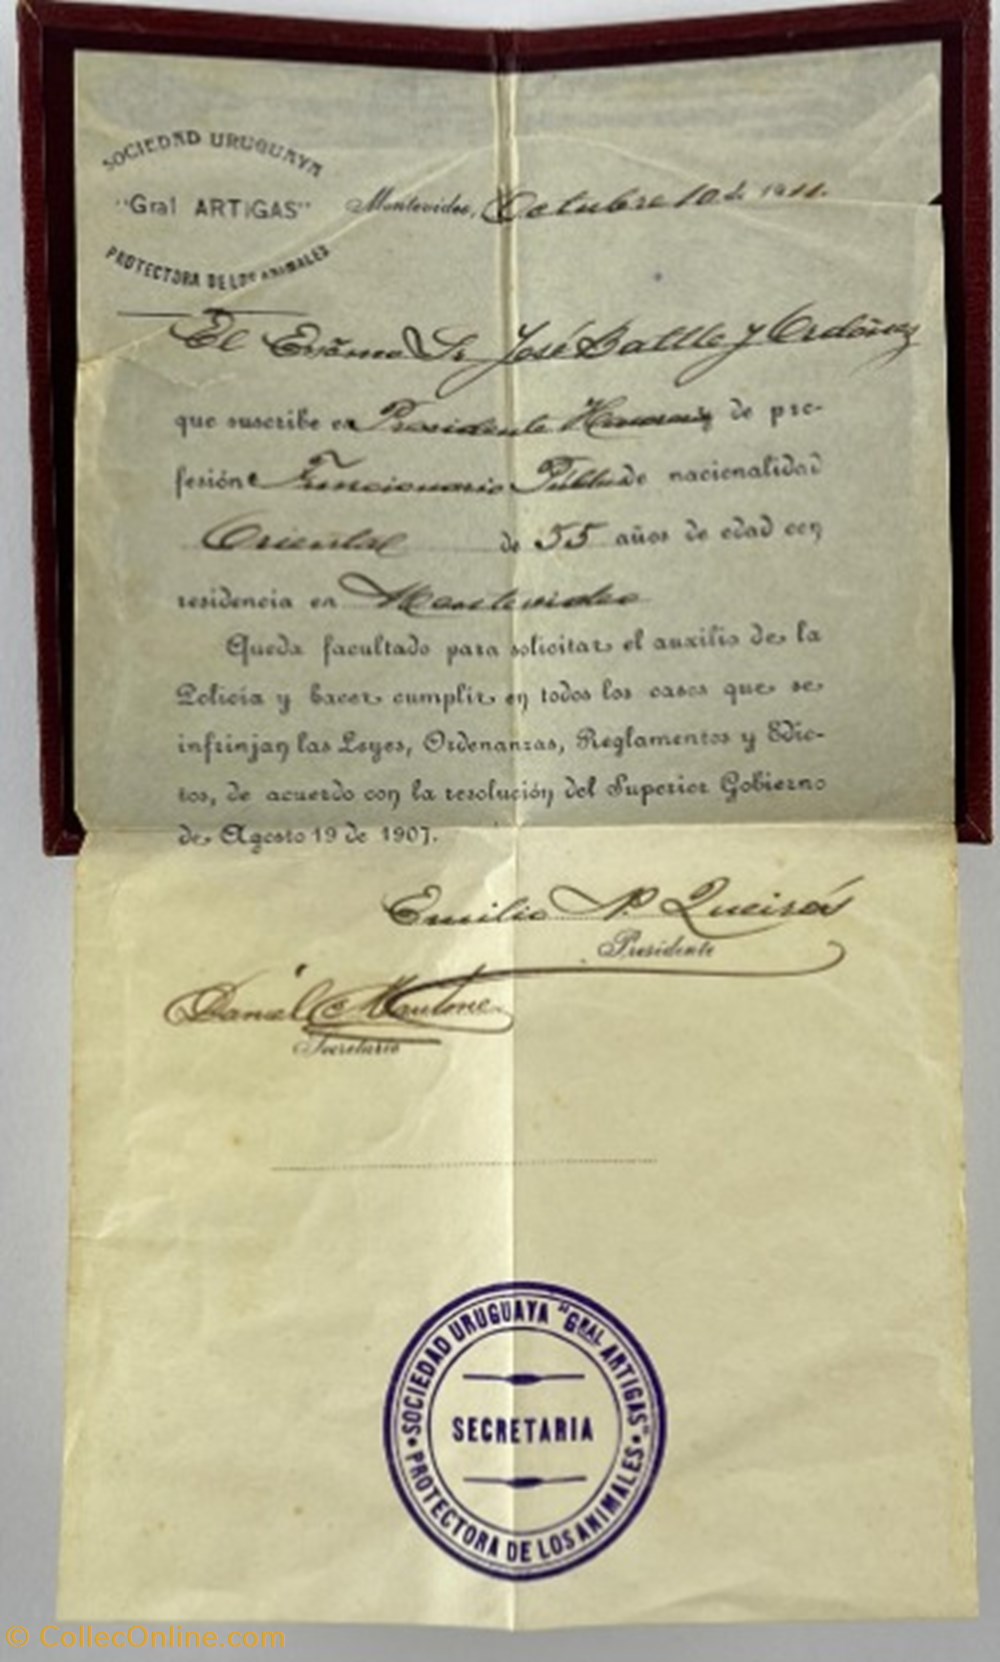 SOCIEDAD URUGUAYA
"Gral ARTIGAS"
PROTECTORA DE LOS ANIMALES
Montevideo, Octubre 10 de 1911.
El Exsmo Sr José Batlle y Ordóñez
que suscribe es Presidente Honorario de pro-
fesión Funcionario Publico de nacionalidad
Oriental de 55 años de edad con
residencia en Montevideo
Queda facultado para solicitar el auxilio de la
Policia y hacer cumplir en todos los casos que se
infrinjan las Leyes, Ordenanzas, Reglamentos y Edic-
tos, de acuerdo con la resolución del Superior Gobierno
de Agosto 19 de 1907.
Emilio N. Queirós
Presidente
Daniel C. Mautone
Secretario
SOCIEDAD URUGUAYA "GRAL ARTIGAS"
SECRETARIA
PROTECTORA DE LOS ANIMALES
© CollecOnline.com